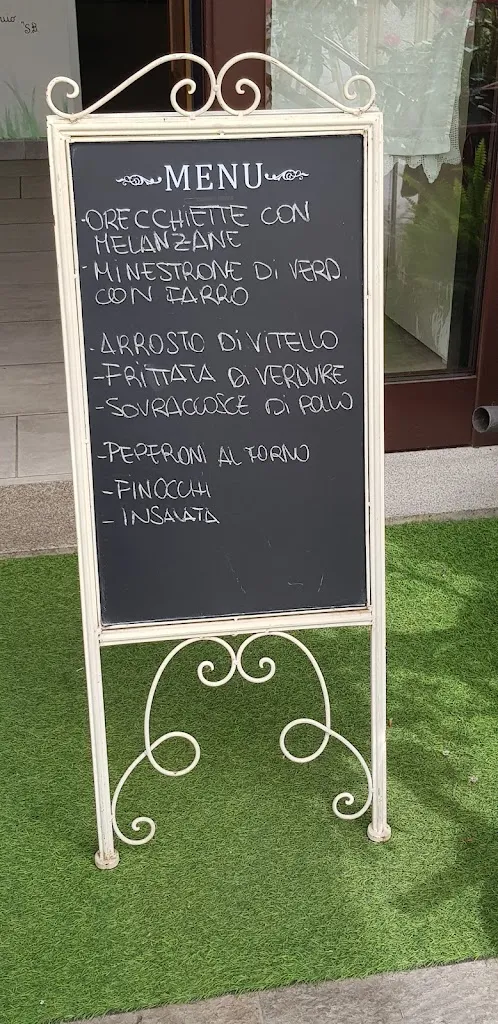 "SB
MENU
-ORECCHIETTE CON
MELANZANE
-MINESTRONE DI VERD.
CON FARRO
-ARROSTO DI VITELLO
-FRITTATA DI VERDURE
-SOVRACCOSCE DI POLLO
-PEPERONI AL FORNO
-FINOCCHI
-INSALATA